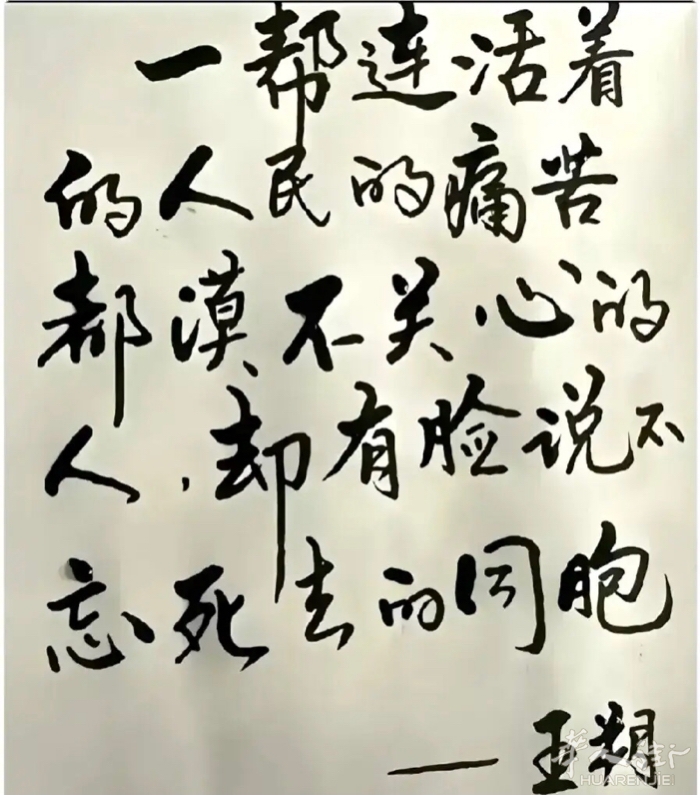 一帮连活着
的人民的痛苦
都漠不关心的
人，却有脸说不
忘死去的同胞
——王朔
华人街
HUARENJIE